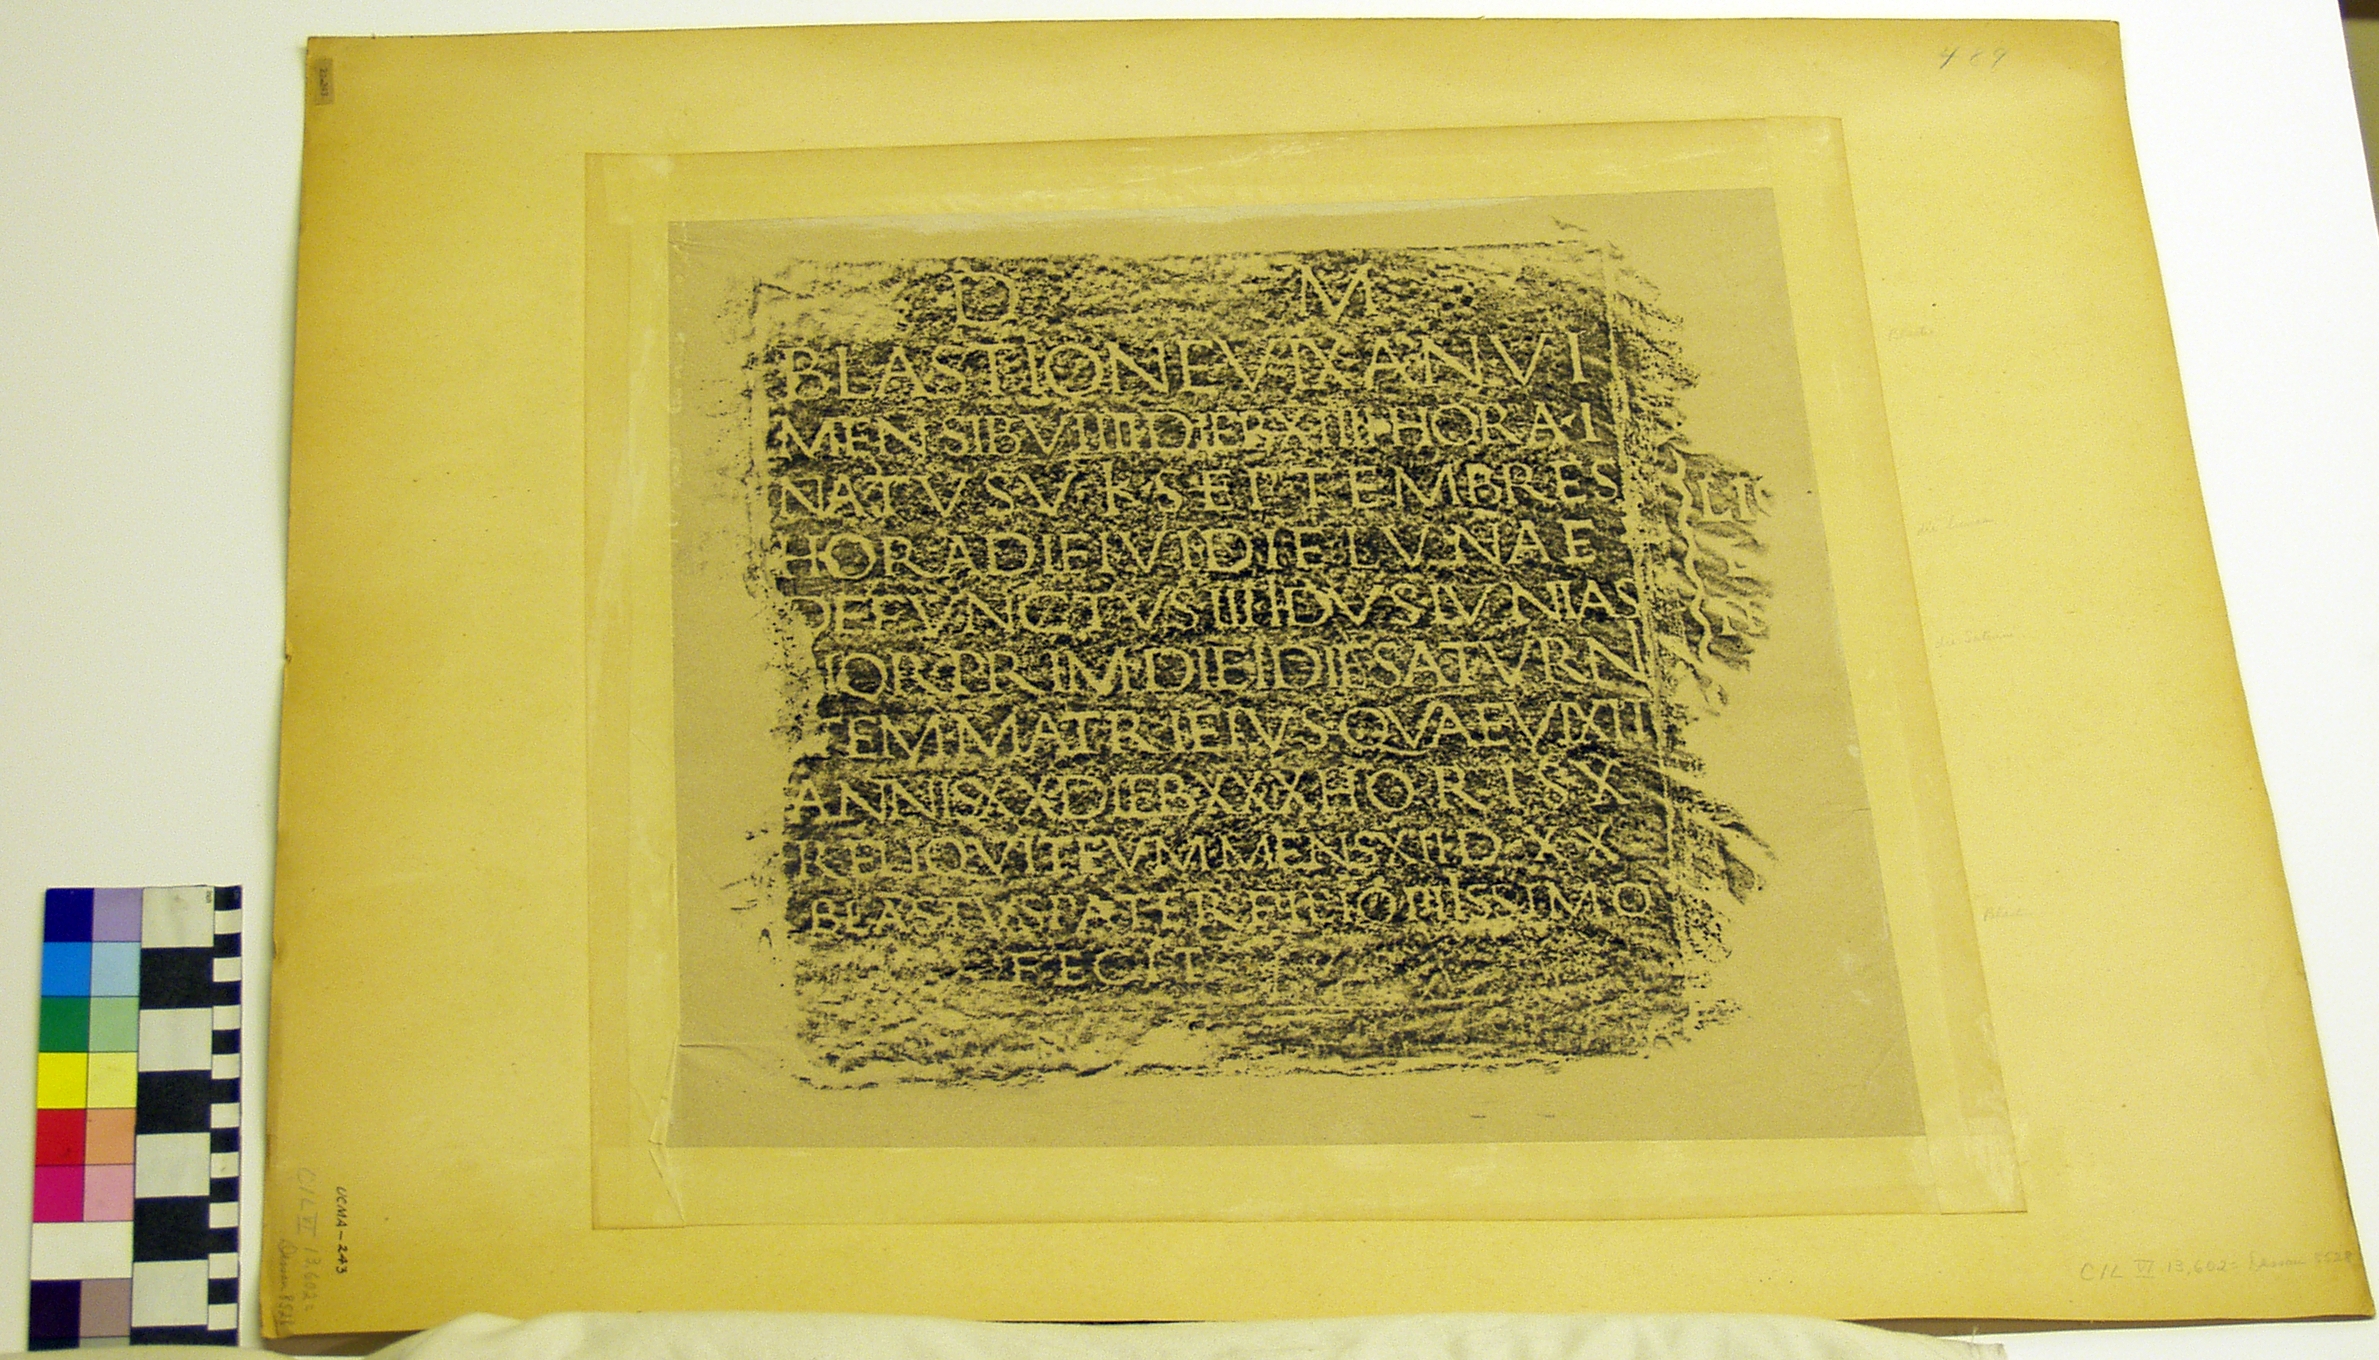 489
D M
BLASTIONE VIX AN VI
MENSIB VIIII DIEB XIIII HORA I
NATVS V K SEPTEMBRES
HORA DIEI VI DIE LVNAE
DEFVNCTVS IIII IDVS IVNIAS
HOR PRIM DIEI DIE SATVRNI
ITEM MATRI EIVS QVAE VIXIT
ANNIS XX DIEB XXX HORIS X
RELIQVIT EVM MENS XII D XX
BLASTVS PATER FILIO PIISSIMO
FECIT
UCMA-243
CIL VI 13,602 =
Dessau 8528
CIL VI 13,602 = Dessau 8528